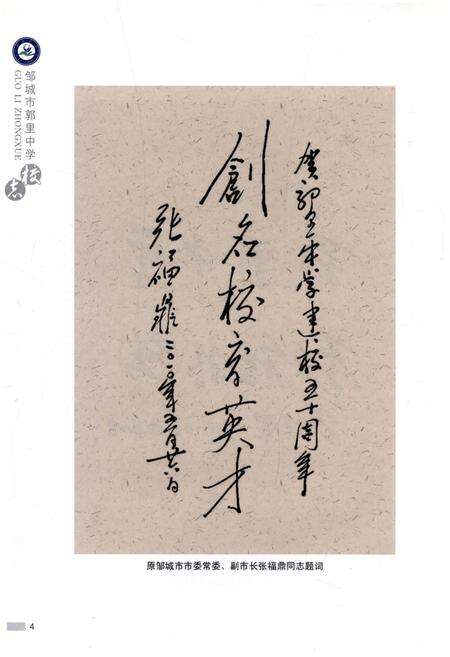 邹城市郭里中学
GUO LI ZHONGXUE
校志
贺郭里中学建校五十周年
創名校育英才
张福鼎二〇一〇年五月廿六日
原邹城市市委常委、副市长张福鼎同志题词
4